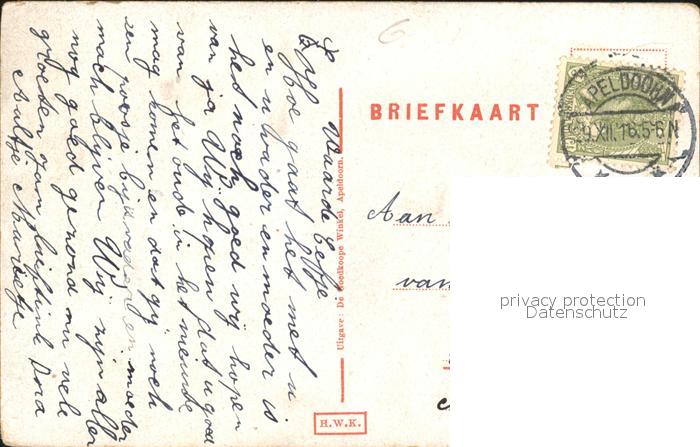 BRIEFKAART
APELDOORN
9.XII.16.5-6N
Aan
van
privacy protection
Datenschutz
Uitgave: De Goedkoope Winkel, Apeldoorn.
H.W.K.
Waarde
Hoe gaat het met u
en u vader en moeder is
het noch goed wij hopen
van ja Wij hopen dat u goed
van het oude in het nieuwe
mag komen en dat gij noch
een poosje bij vader en moeder
mach blijven Wij zijn allen
nog goed gezond nu vele
groeten van Dora
Aaltje